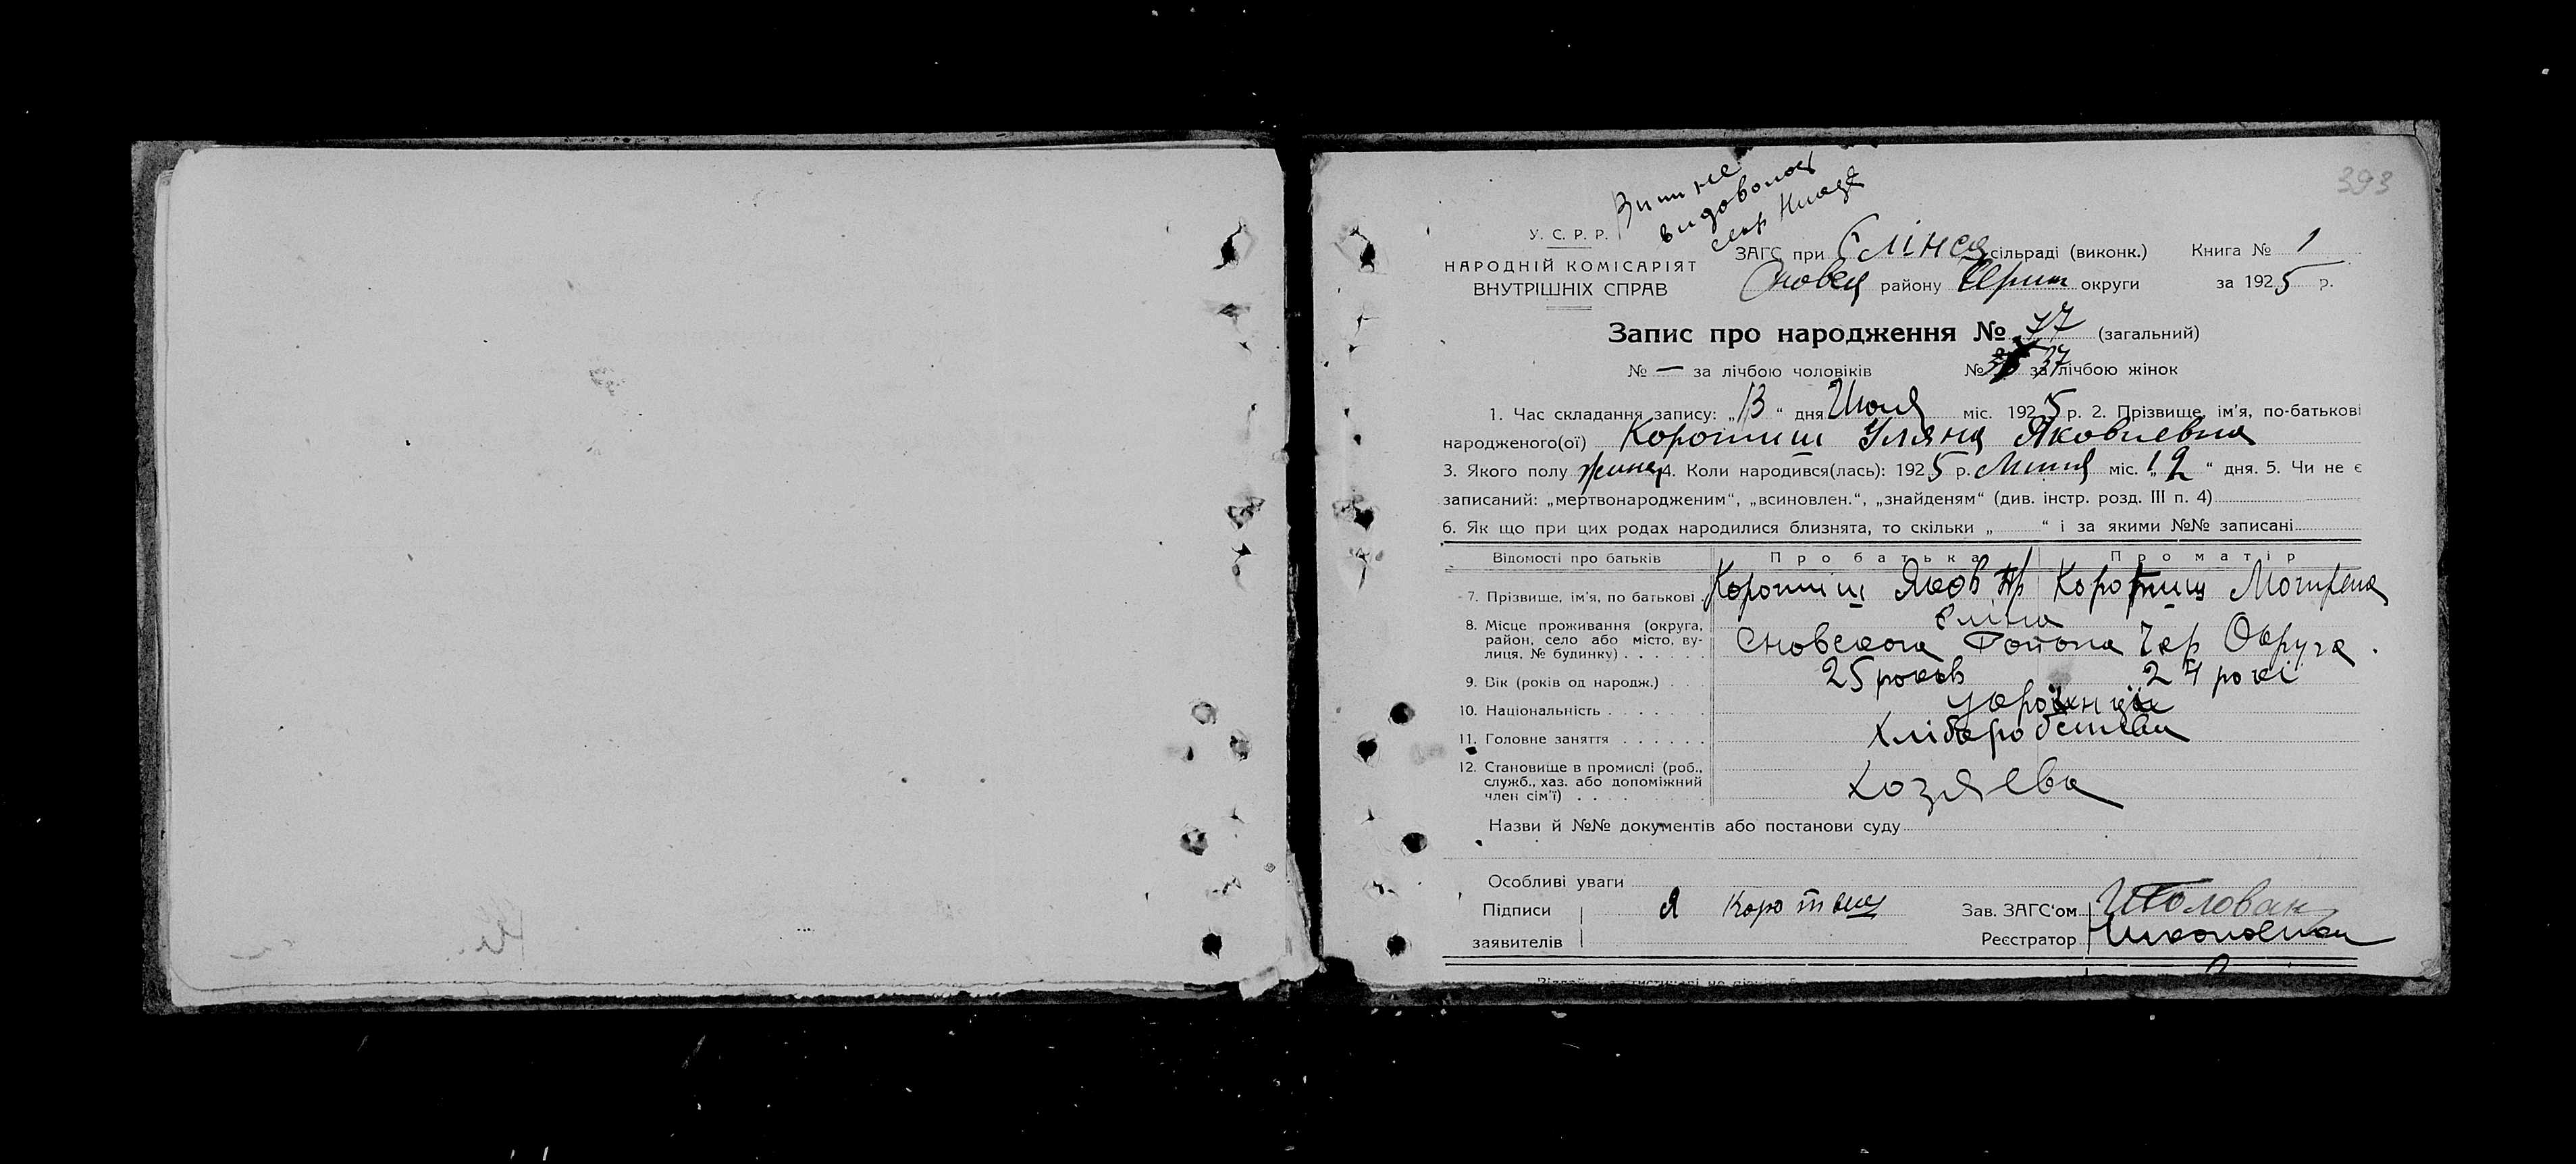 393
У. С. Р. Р.
НАРОДНІЙ КОМІСАРІЯТ
ВНУТРІШНІХ СПРАВ
ЗАГС при Єлінск сільраді (виконк.) Книга № 1
Сновск району Черниг округи за 1925 р.
Запис про народження № 77 (загальний)
№ — за лічбою чоловіків № 37 за лічбою жінок
1. Час складання запису: „13“ дня Июля міс. 1925 р. 2. Прізвище, ім'я, по-батькові
народженого(ої) Коротиш Уляна Яковлевна
3. Якого полу жиноч 4. Коли народився(лась): 1925 р. Липня міс. „12“ дня. 5. Чи не є
записаний: „мертвонародженим“, „всиновлен.“, „знайденям“ (див. інстр. розд. III п. 4)
6. Як що при цих родах народилися близнята, то скільки „ “ і за якими №№ записані
Відомості про батьків Про батька Про матір
7. Прізвище, ім'я, по батькові Коротиш Яков Коротиш
8. Місце проживання (округа, район, село або місто, вулиця, № будинку) Єліна
Сновского Района Чер Округа
9. Вік (років од народж.) 25 років 24 рокі
10. Національність українці
11. Головне заняття хліборобство
12. Становище в промислі (роб., служб., хаз. або допоміжний член сім'ї) хозяева
Назви й №№ документів або постанови суду
Особливі уваги
Підписи заявителів Я Коротиш
Зав. ЗАГС'ом Головач
Реєстратор